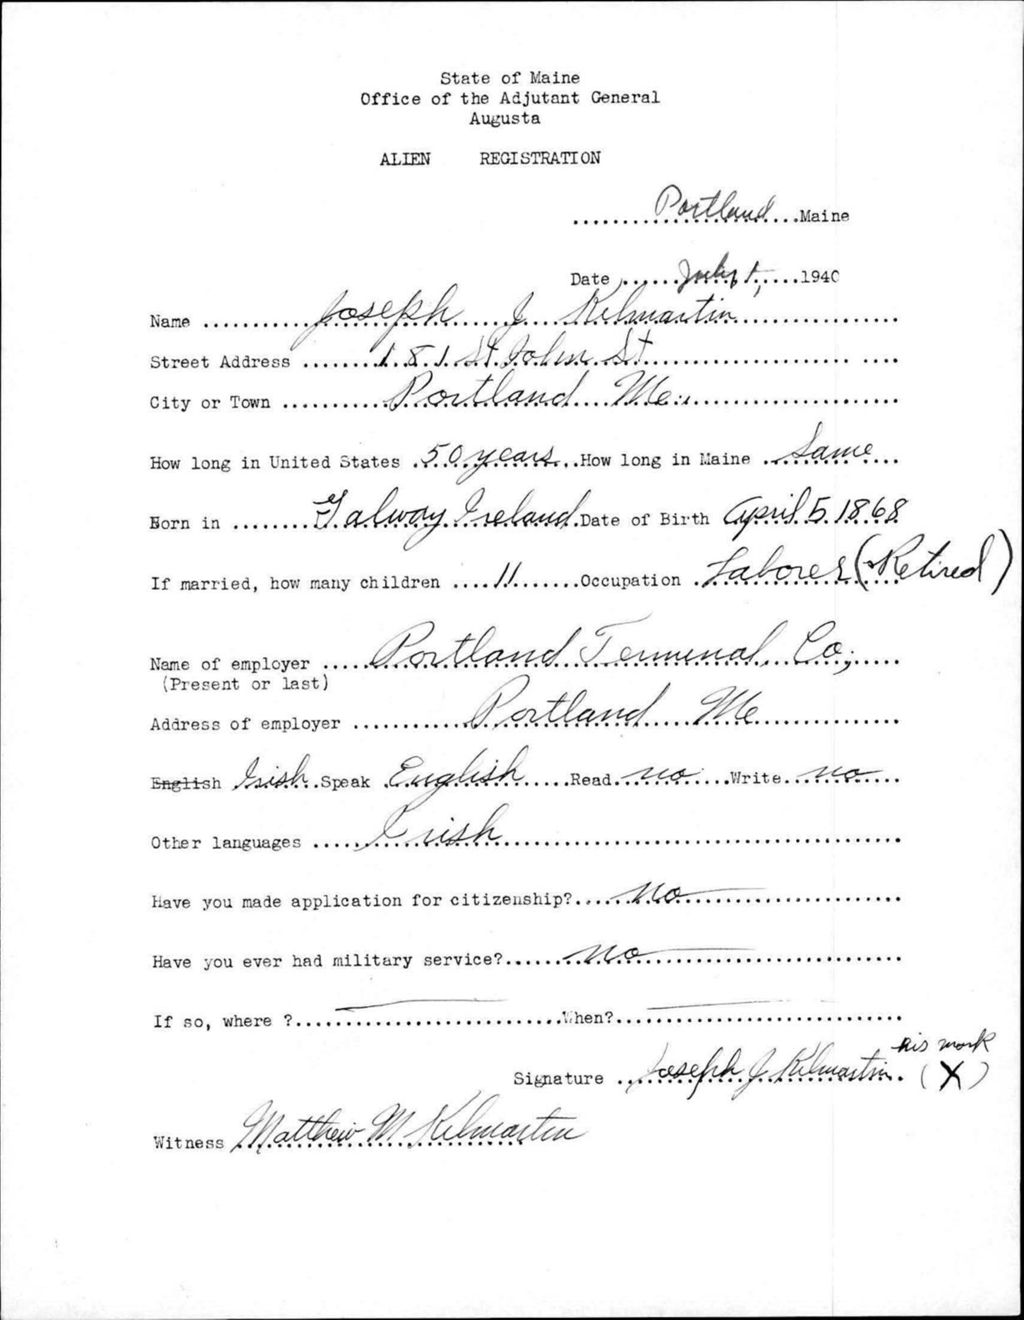 State of Maine
Office of the Adjutant General
Augusta
ALIEN REGISTRATION
Portland Maine
Date July 1, 1940
Name Joseph J Kilmartin
Street Address 181 St John St
City or Town Portland Me.
How long in United States 50 years How long in Maine Same
Born in Galway Ireland Date of Birth April 5 1868
If married, how many children 11 Occupation Laborer (Retired)
Name of employer Portland Terminal Co,
(Present or last)
Address of employer Portland Me
English Irish Speak English Read no Write no
Other languages Irish
Have you made application for citizenship? No
Have you ever had military service? No
If so, where ? When?
his mark
Signature Joseph J Kilmartin (X)
Witness Matthew M Kilmartin